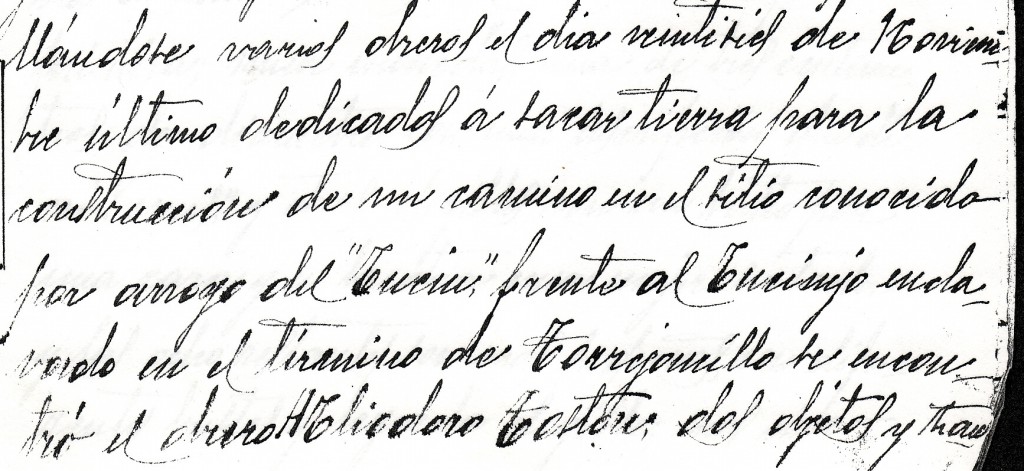 llándose varios obreros el dia veintiseis de Noviem-
bre último dedicados á sacar tierra para la
construcción de un camino en el sitio conocido
por arroyo del "Encin", frente al Encinejo encla-
vado en el término de Torrejoncillo se encon-
tró el obrero Heliodoro dos objetos y